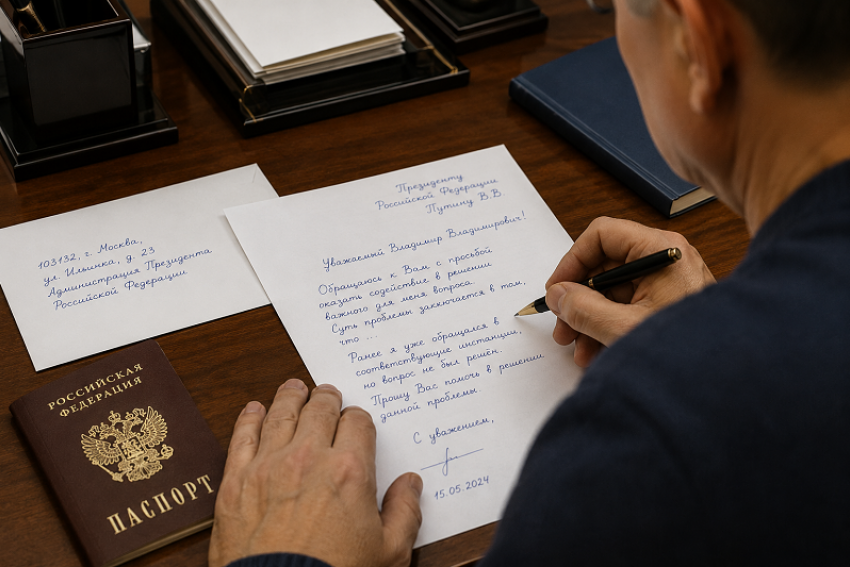 103132, г. Москва,
ул. Ильинка, д. 23
Администрация Президента
Российской Федерации
Президенту
Российской Федерации
Путину В.В.
Уважаемый Владимир Владимирович!
Обращаюсь к Вам с просьбой
оказать содействие в решении
важного для меня вопроса.
Суть проблемы заключается в том,
что ...
Ранее я уже обращался в
соответствующие инстанции,
но вопрос не был решён.
Прошу Вас помочь в решении
данной проблемы.
С уважением,
15.05.2024
РОССИЙСКАЯ
ФЕДЕРАЦИЯ
ПАСПОРТ